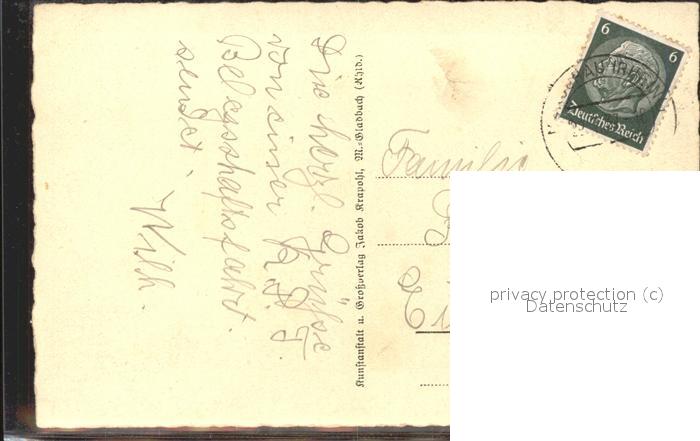 Die herzl. Grüße
von einer K.d.F.
Belegschaftsfahrt.
sendet.
Wilh.
Kunstanstalt u. Großverlag Jakob Krapohl, M.-Gladbach (Rhld.)
6 6
Deutsches Reich
Familie
privacy protection (c)
Datenschutz